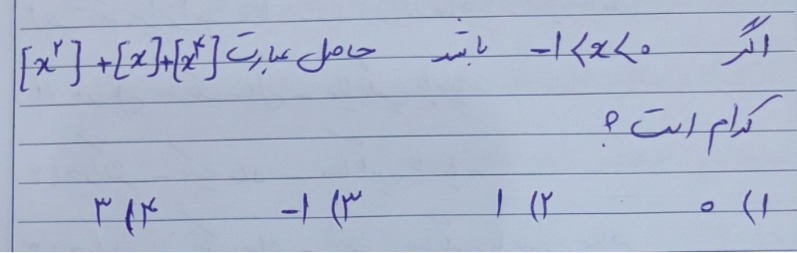 اگر -۱<x<۰ باشد حاصل عبارت [x^۲]+[x]+[x^۴]
کدام است ؟
۱) ۰ ۲) ۱ ۳) -۱ ۴) ۳